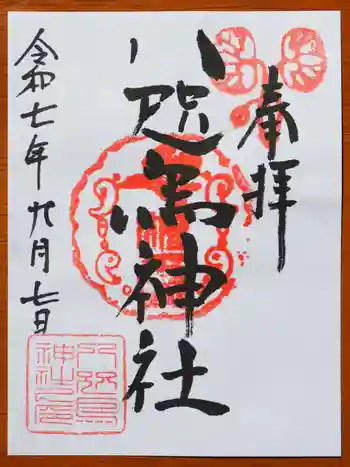 奉拝
八咫烏神社
令和七年九月七日
八咫烏
神社之印